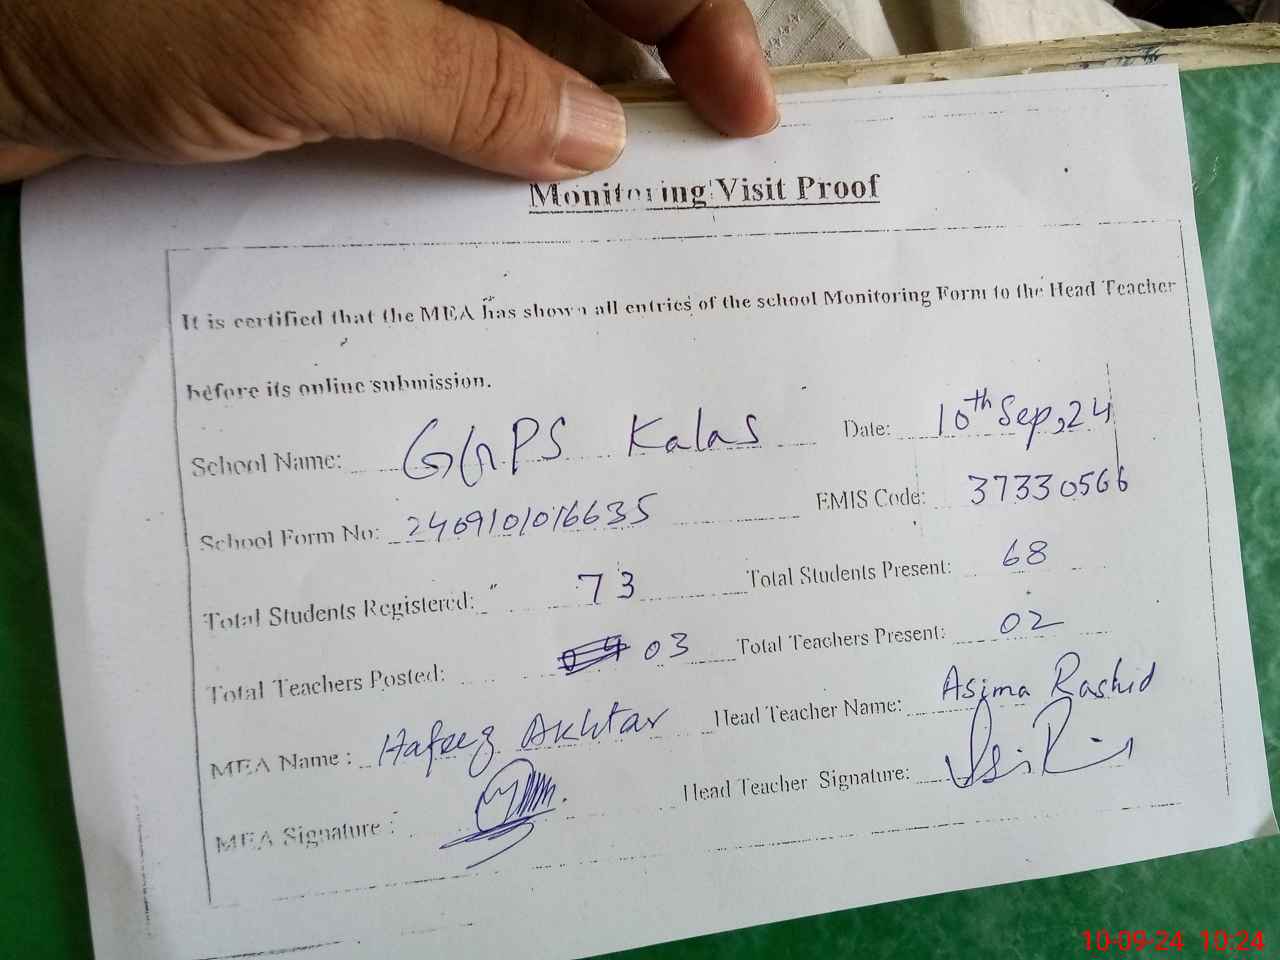 Monitoring Visit Proof
It is certified that the MEA has shown all entries of the school Monitoring Form to the Head Teacher
before its online submission.
School Name: GGPS Kalas Date: 10th Sep, 24
School Form No: 2409101016635 EMIS Code: 37330566
Total Students Registered: 73 Total Students Present: 68
Total Teachers Posted: 03 Total Teachers Present: 02
MEA Name : Hafeez Akhtar Head Teacher Name: Asima Rashid
MEA Signature : Head Teacher Signature:
10-09-24 10:24